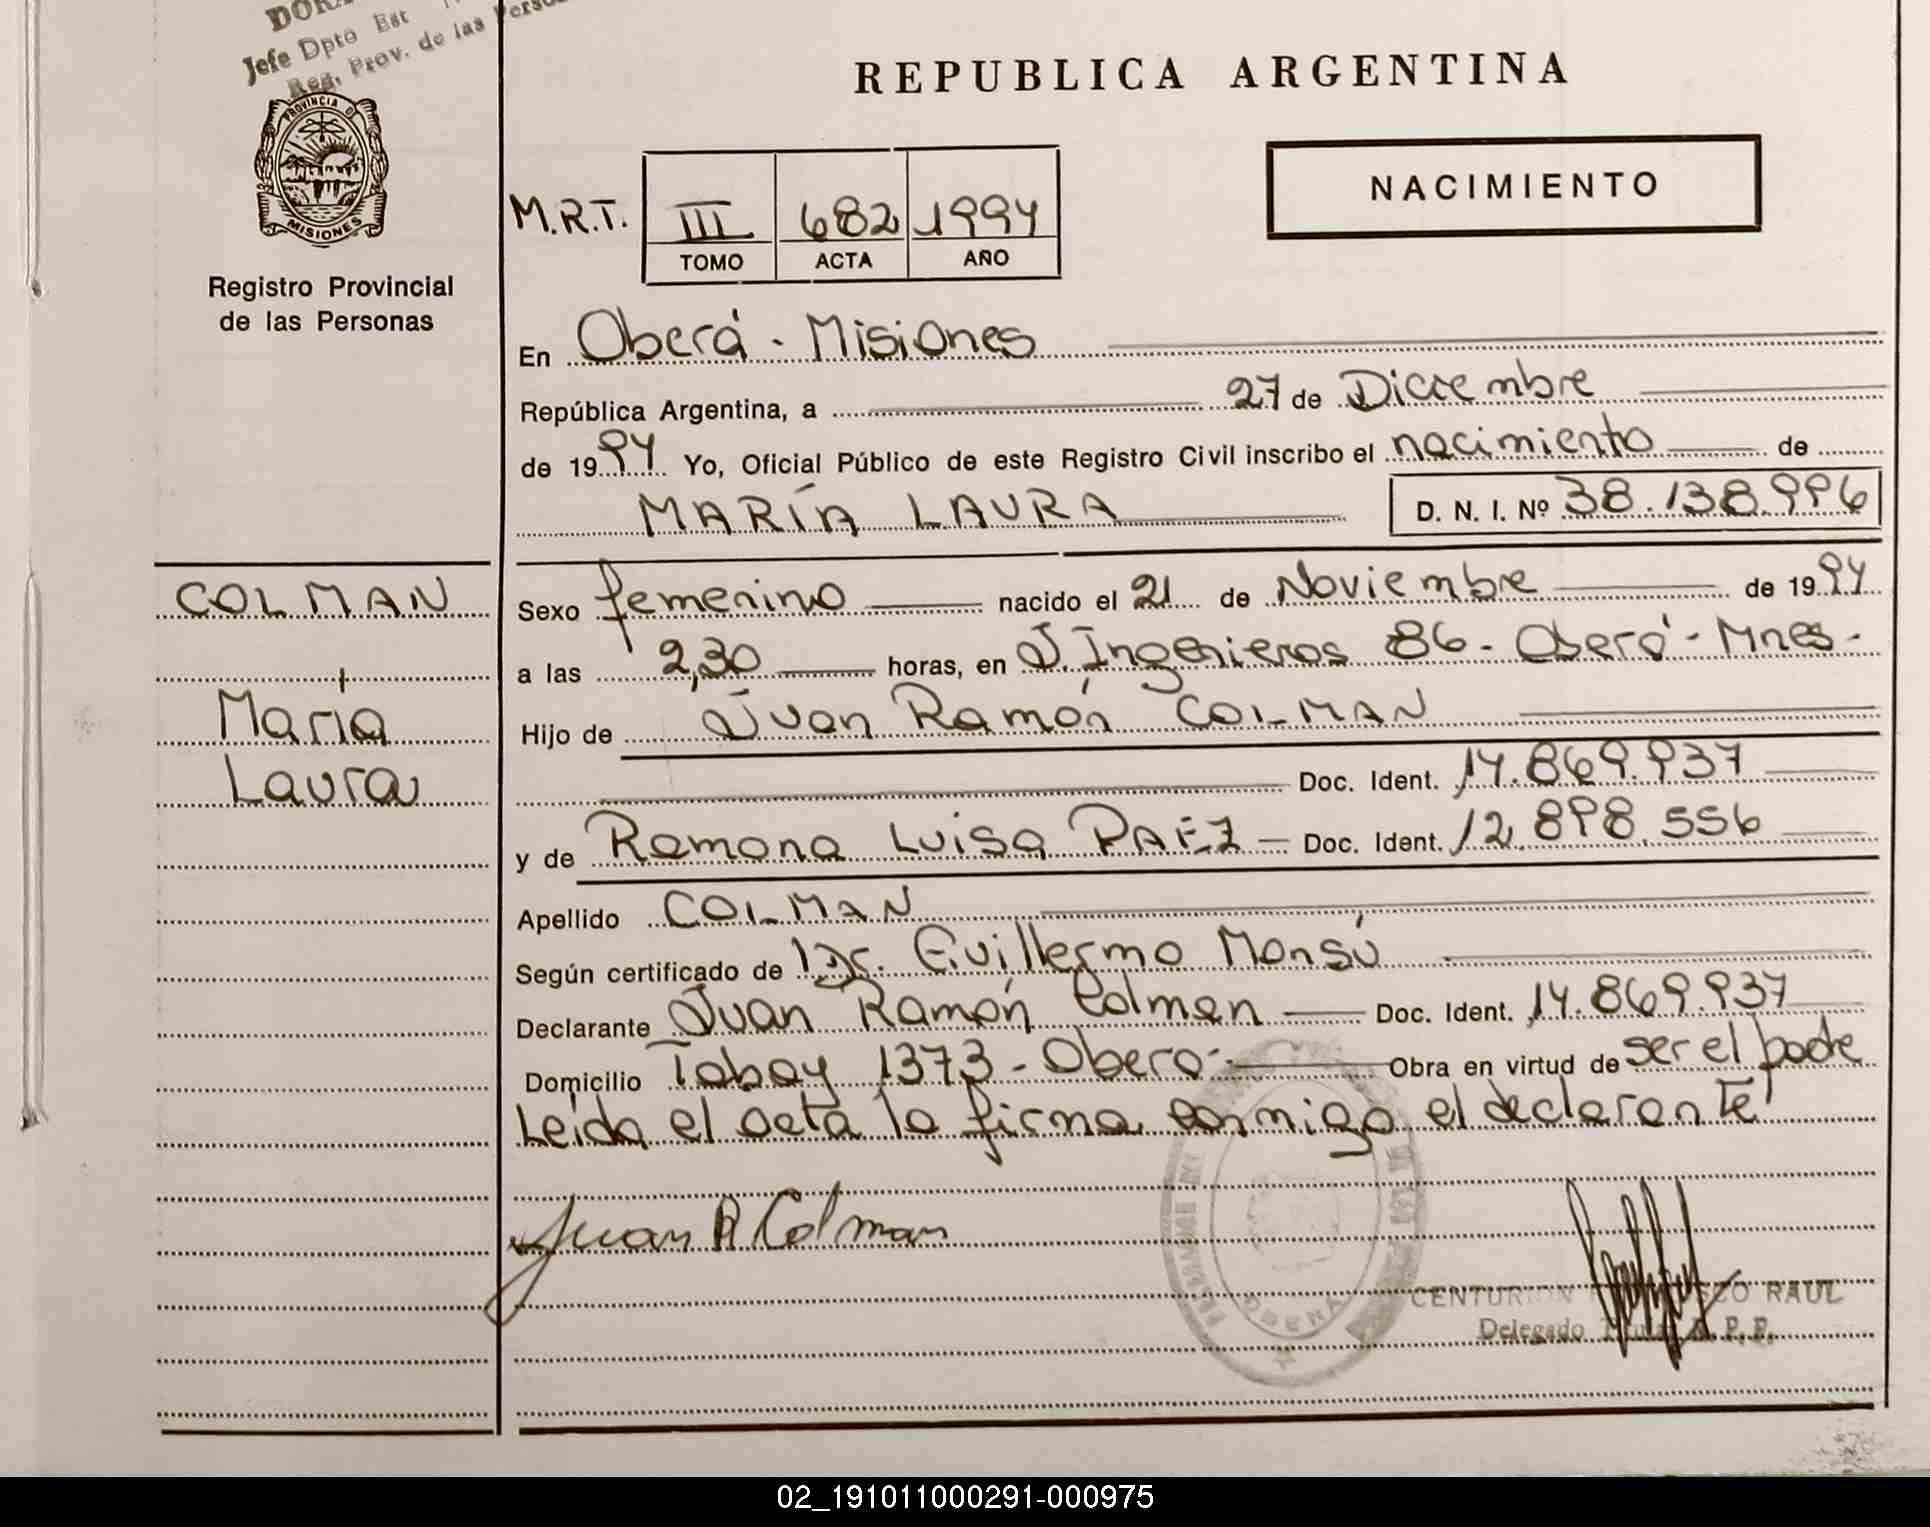 Jefe Dpto Est
Reg. Prov. de las
PROVINCIA DE
MISIONES
Registro Provincial
de las Personas
REPUBLICA ARGENTINA
NACIMIENTO
M.R.T. III 682 1994
TOMO ACTA AÑO
En Oberá - Misiones
República Argentina, a 27 de Diciembre
de 1994 Yo, Oficial Público de este Registro Civil inscribo el nacimiento de
MARÍA LAURA D. N. I. Nº 38.138.996
COLMAN
María
Laura
Sexo femenino nacido el 21 de Noviembre de 1994
a las 2,30 horas, en J. Ingenieros 86 - Oberá - Mnes -
Hijo de Juan Ramón COLMAN
Doc. Ident. 14.869.937
y de Ramona Luisa PAEZ Doc. Ident. 12.898.556
Apellido COLMAN
Según certificado de Dr. Guillermo Monsú
Declarante Juan Ramón Colman Doc. Ident. 14.869.937
Domicilio Tabay 1373 - Oberá - Obra en virtud de ser el padre
Leída el acta la firma conmigo el declarante
Juan R Colman
OBERA
CENTURION RAUL
Delegado Titular R. P. P.
02_191011000291-000975